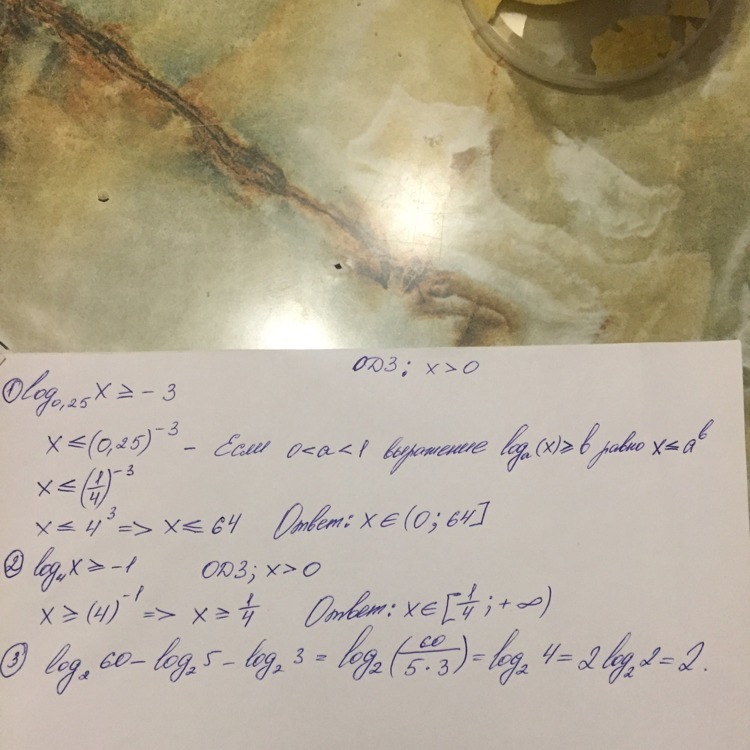 ОДЗ: x>0
① log₀,₂₅ x ≥ -3
x ≤ (0,25)⁻³ - Если 0<a<1 выражение logₐ(x) ≥ b равно x ≤ aᵇ
x ≤ (1/4)⁻³
x ≤ 4³ => x ≤ 64 Ответ: x ∈ (0; 64]
② log₄ x ≥ -1 ОДЗ; x>0
x ≥ (4)⁻¹ => x ≥ 1/4 Ответ: x ∈ [1/4; +∞)
③ log₂ 60 - log₂ 5 - log₂ 3 = log₂ (60/(5·3)) = log₂ 4 = 2 log₂ 2 = 2.